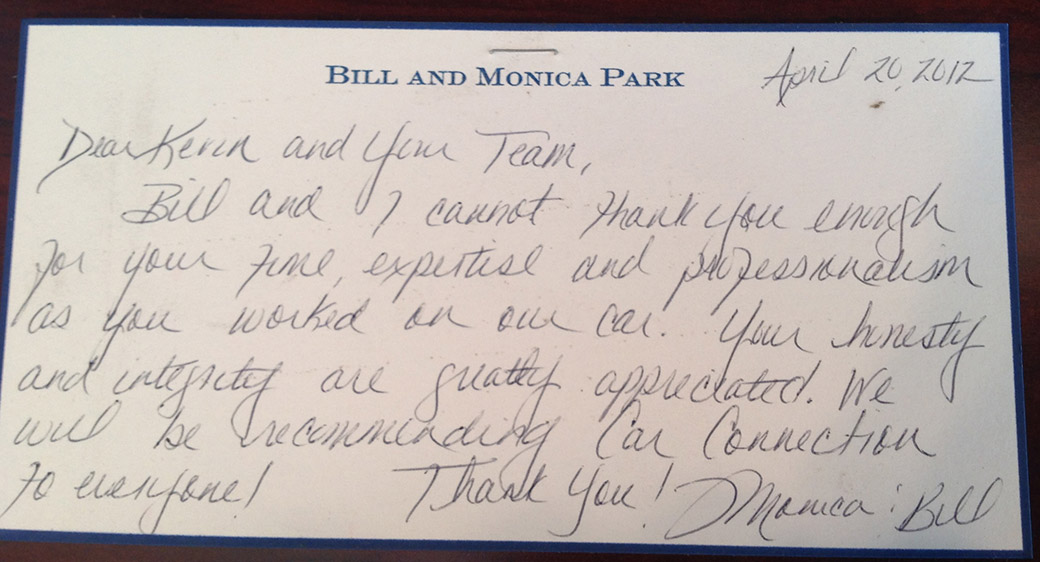 BILL AND MONICA PARK
April 20, 2012
Dear Kevin and Your Team,
Bill and I cannot thank you enough
for your time, expertise and professionalism
as you worked on our car. Your honesty
and integrity are greatly appreciated. We
will be recommending Car Connection
to everyone! Thank You! Monica & Bill